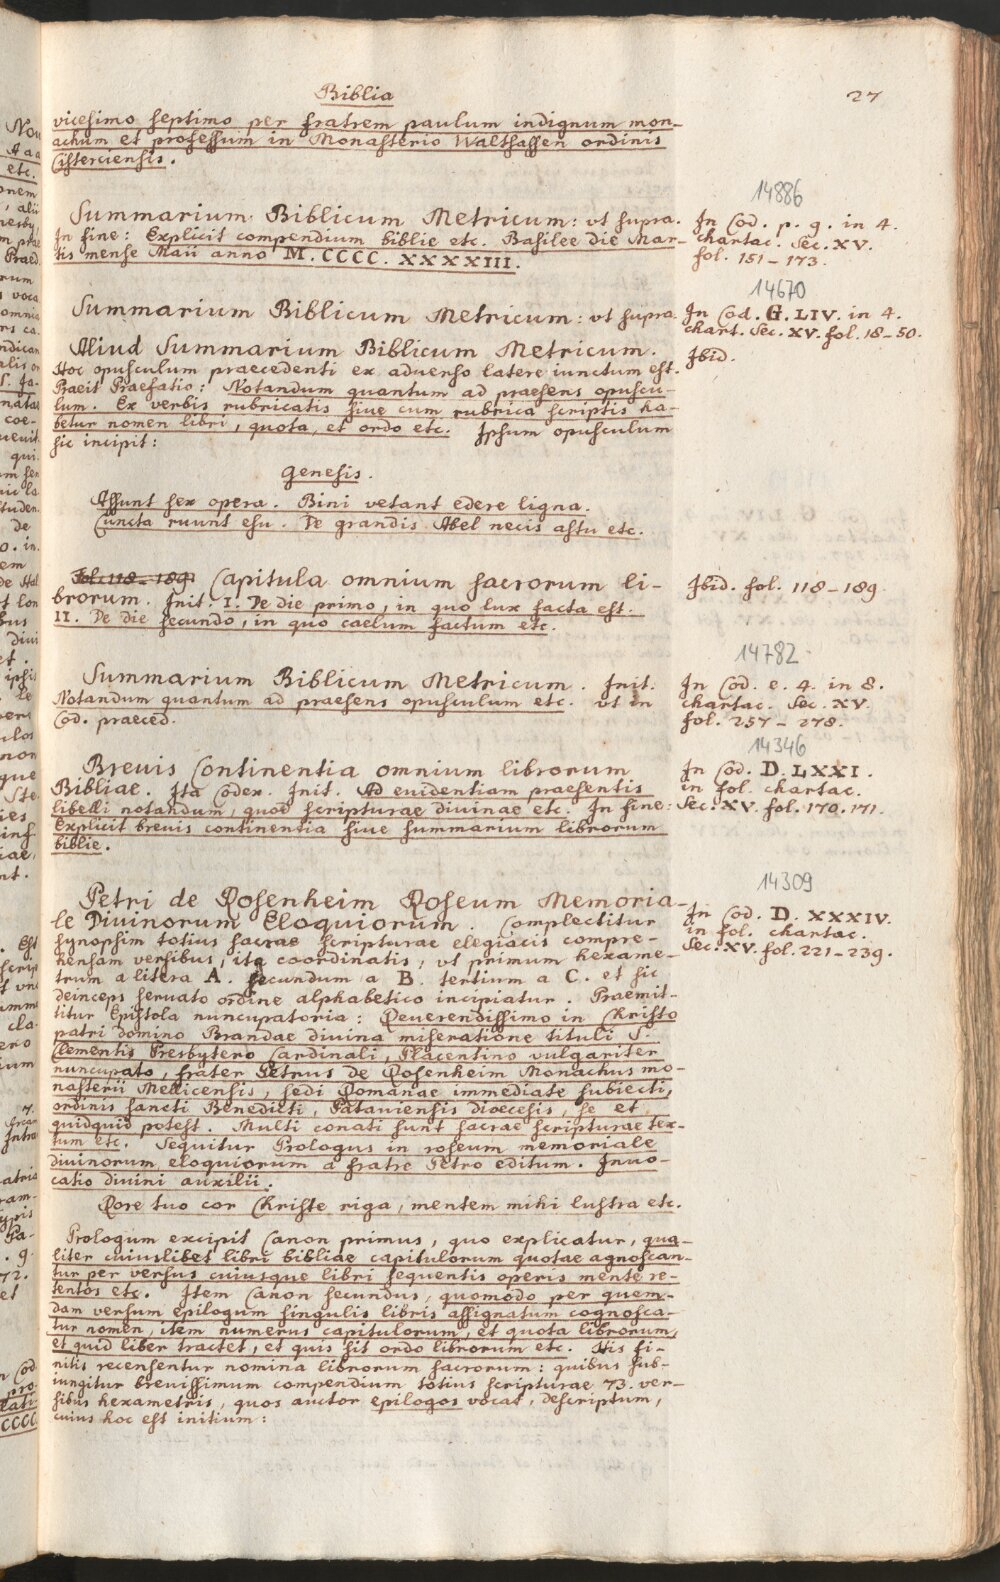 Biblia
27
vicesimo septimo per fratrem paulum indignum mon-
achum et professum in Monasterio Waltsassen ordinis
Cisterciensis.
14886
Summarium Biblicum Metricum: vt supra.
In fine: Explicit compendium biblie etc. Basilee die Mar-
tis mense Maii anno M.CCCC.XXXXIII.
In Cod. p. 9. in 4.
chartac. Sec. XV.
fol. 151-173.
14670
Summarium Biblicum Metricum: vt supra.
In Cod. G. LIV. in 4.
chart. Sec. XV. fol. 18-50.
Aliud Summarium Biblicum Metricum.
Ibid.
Hoc opusculum praecedenti ex aduerso latere iunctum est.
Praeit Praefatio: Notandum quantum ad praesens opuscu-
lum. Ex verbis rubricatis siue cum rubrica scriptis ha-
betur nomen libri, quota, et ordo etc. Ipsum opusculum
sic incipit:
Genesis.
Assunt sex opera. Bini vetant edere ligna.
Cuncta ruunt esu. De grandis Abel necis astu etc.
Fol. 118-189. Capitula omnium sacrorum li-
brorum. Init. I. De die primo, in quo lux facta est.
II. De die secundo, in quo caelum factum etc.
Ibid. fol. 118-189.
14782
Summarium Biblicum Metricum. Init.
Notandum quantum ad praesens opusculum etc. vt in
Cod. praeced.
In Cod. e. 4. in 8.
chartac. Sec. XV.
fol. 257-278.
14346
Breuis Continentia omnium librorum
Bibliae. Ita Codex. Init. Ad euidentiam praesentis
libelli notandum, quod scripturae diuinae etc. In fine:
Explicit breuis continentia siue summarium librorum
biblie.
In Cod. D. LXXI.
in fol. chartac.
Sec. XV. fol. 170. 171.
14309
Petri de Rosenheim Roseum Memoria-
le Diuinorum Eloquiorum. Complectitur
synopsim totius sacrae scripturae elegiacis compre-
hensam versibus, ita coordinatis, vt primum hexame-
trum a litera A. secundum a B. tertium a C. et sic
deinceps seruato ordine alphabetico incipiatur. Praemit-
titur Epistola nuncupatoria: Reuerendissimo in Christo
patri domino Brandae diuina miseratione tituli S.
Clementis Presbytero Cardinali, Placentino vulgariter
nuncupato, frater Petrus de Rosenheim Monachus mo-
nasterii Mellicensis, sedi Romanae immediate subiecti,
ordinis sancti Benedicti, Patauiensis dioecesis, se et
quidquid potest. Multi conati sunt sacrae scripturae tex-
tum etc. Sequitur Prologus in roseum memoriale
diuinorum eloquiorum a fratre Petro editum. Inuo-
catio diuini auxilii.
In Cod. D. XXXIV.
in fol. chartac.
Sec. XV. fol. 221-239.
Rore tuo cor Christe riga, mentem mihi lustra etc.
Prologum excipit Canon primus, quo explicatur, qua-
liter cuiuslibet libri bibliae capitulorum quotae agnoscan-
tur per versus cuiusque libri sequentis operis mente re-
tentos etc. Item Canon secundus, quomodo per quem-
dam versum epilogum singulis libris assignatum cognosca-
tur nomen, item numerus capitulorum, et quota librorum,
et quid liber tractet, et quis sit ordo librorum etc. His fi-
nitis recensentur nomina librorum sacrorum: quibus sub-
iungitur breuissimum compendium totius scripturae 73. ver-
sibus hexametris, quos auctor epilogos vocat, descriptum,
cuius hoc est initium: